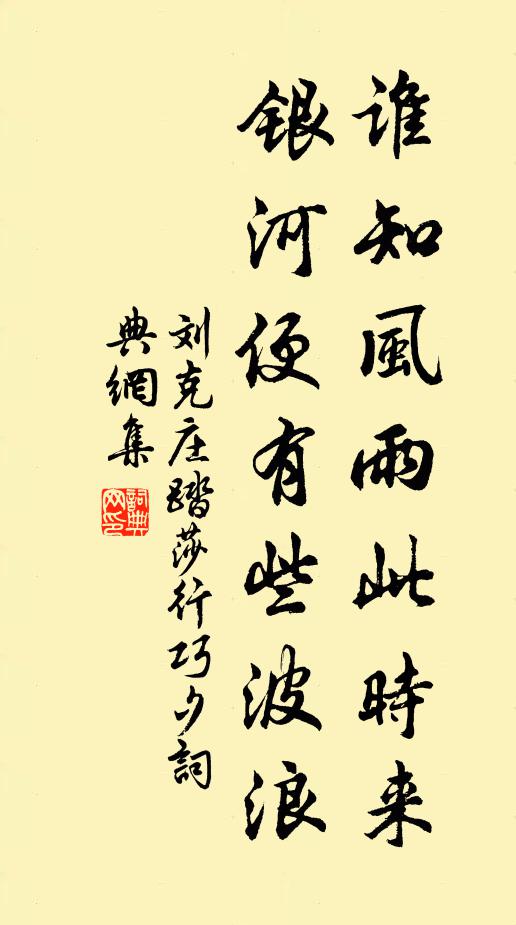 谁知風雨此時来
银河便有些波浪
刘克庄踏莎行巧夕詞
典網集
詞典网印